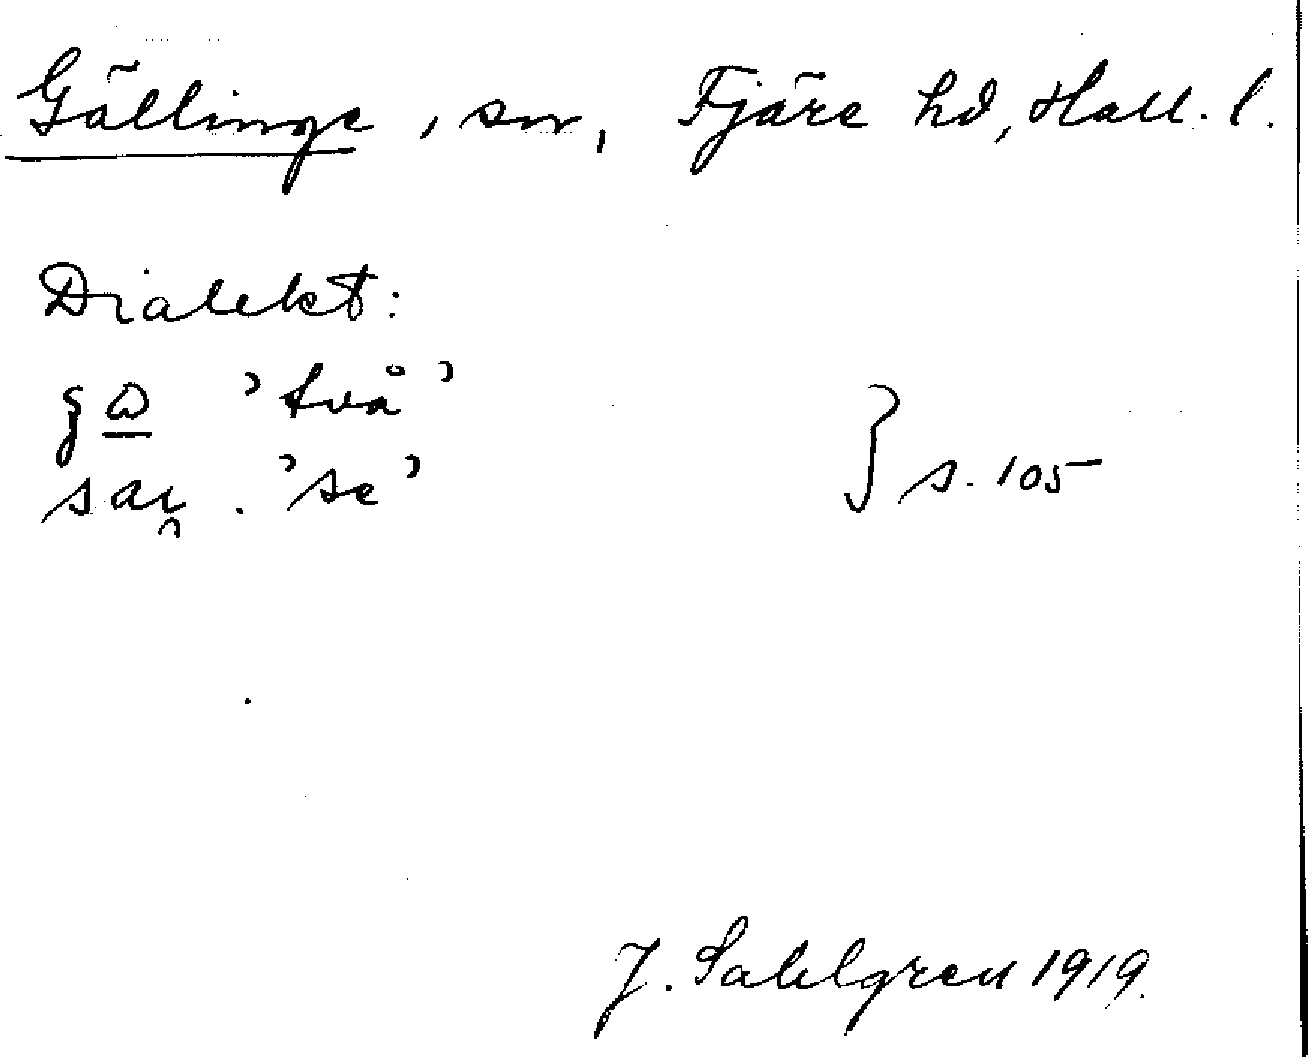 Gällinge, sn, Fjäre hd, Hall. l.
Dialekt:
'två'
sai̯ . 'se' } s. 105
J. Sahlgren 1919.